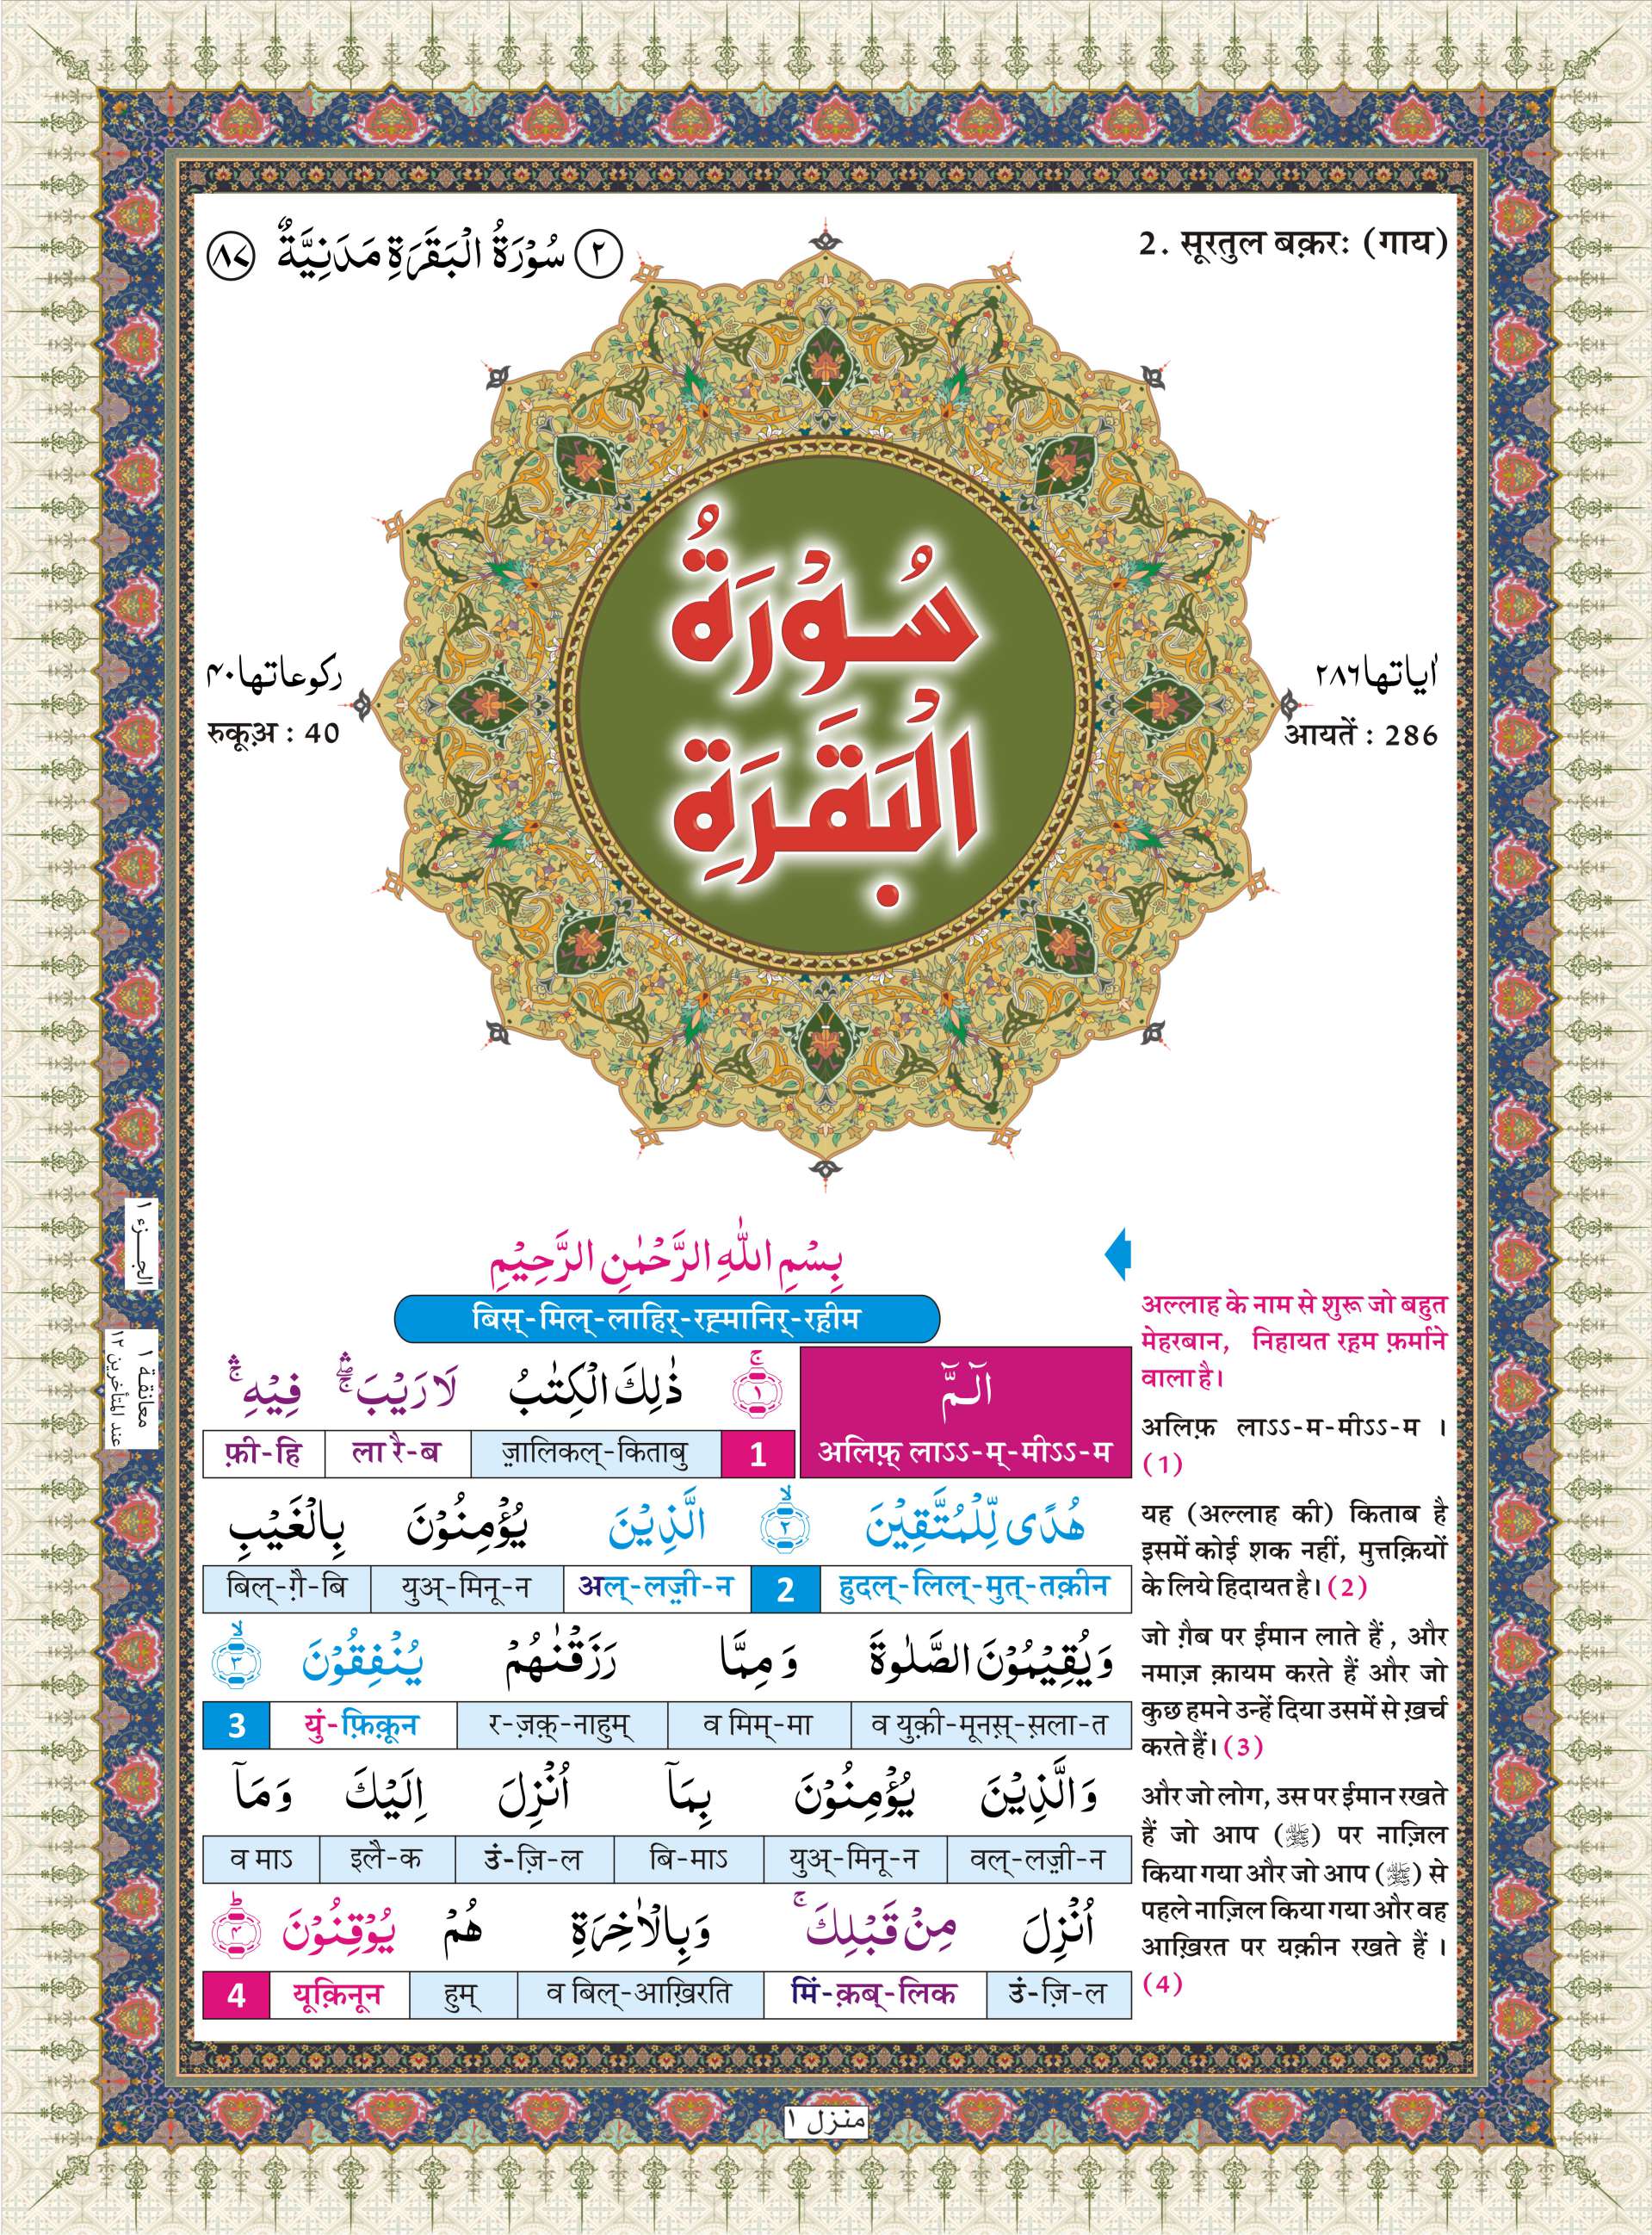 ۲ سُوْرَةُ الْبَقَرَةِ مَدَنِيَّةٌ ۸۷
2. सूरतुल बक़रः (गाय)
سُوْرَةُ
الْبَقَرَةِ
اٰیاتها ۲۸۶
आयतें : 286
رکوعاتها ۴۰
रुकूअ़ : 40
بِسْمِ اللّٰهِ الرَّحْمٰنِ الرَّحِيْمِ
बिस्-मिल्-लाहिर्-रह़्मानिर्-रह़ीम
الٓمّٓ ۚ‏﴿۱﴾ ذٰلِكَ الْكِتٰبُ لَا رَيْبَ ۛۖۚ فِيْهِ ۛۚ
अलिफ़् लाऽऽ-म्-मीऽऽ-म 1 ज़ालिकल्-किताबु ला रै-ब फ़ी-हि
هُدًى لِّلْمُتَّقِيْنَ ۙ‏﴿۲﴾ الَّذِيْنَ يُؤْمِنُوْنَ بِالْغَيْبِ
हुदल्-लिल्-मुत्-तक़ीन 2 अल्-लज़ी-न युअ्-मिनू-न बिल्-ग़ै-बि
وَيُقِيْمُوْنَ الصَّلٰوةَ وَمِمَّا رَزَقْنٰهُمْ يُنْفِقُوْنَ ۙ‏﴿۳﴾
व युक़ी-मूनस़्-स़ला-त व मिम्-मा र-ज़क़्-नाहुम् युं-फ़िक़ून 3
وَالَّذِيْنَ يُؤْمِنُوْنَ بِمَآ اُنْزِلَ اِلَيْكَ وَمَآ
वल्-लज़ी-न युअ्-मिनू-न बि-माऽ उं-ज़ि-ल इलै-क व माऽ
اُنْزِلَ مِنْ قَبْلِكَ ۚ وَبِالْاٰخِرَةِ هُمْ يُوْقِنُوْنَ ؕ‏﴿۴﴾
उं-ज़ि-ल मिं-क़ब्-लिक व बिल्-आख़िरति हुम् यूक़िनून 4
अल्लाह के नाम से शुरू जो बहुत
मेहरबान, निहायत रह़म फ़र्माने
वाला है।
अलिफ़ लाऽऽ-म-मीऽऽ-म ।
(1)
यह (अल्लाह की) किताब है
इसमें कोई शक नहीं, मुत्तक़ियों
के लिये हिदायत है। (2)
जो ग़ैब पर ईमान लाते हैं, और
नमाज़ क़ायम करते हैं और जो
कुछ हमने उन्हें दिया उसमें से ख़र्च
करते हैं। (3)
और जो लोग, उस पर ईमान रखते
हैं जो आप (ﷺ) पर नाज़िल
किया गया और जो आप (ﷺ) से
पहले नाज़िल किया गया और वह
आख़िरत पर यक़ीन रखते हैं ।
(4)
الجزء ۱
معانقة ۱
عند المتأخرين ۱۲
منزل ۱